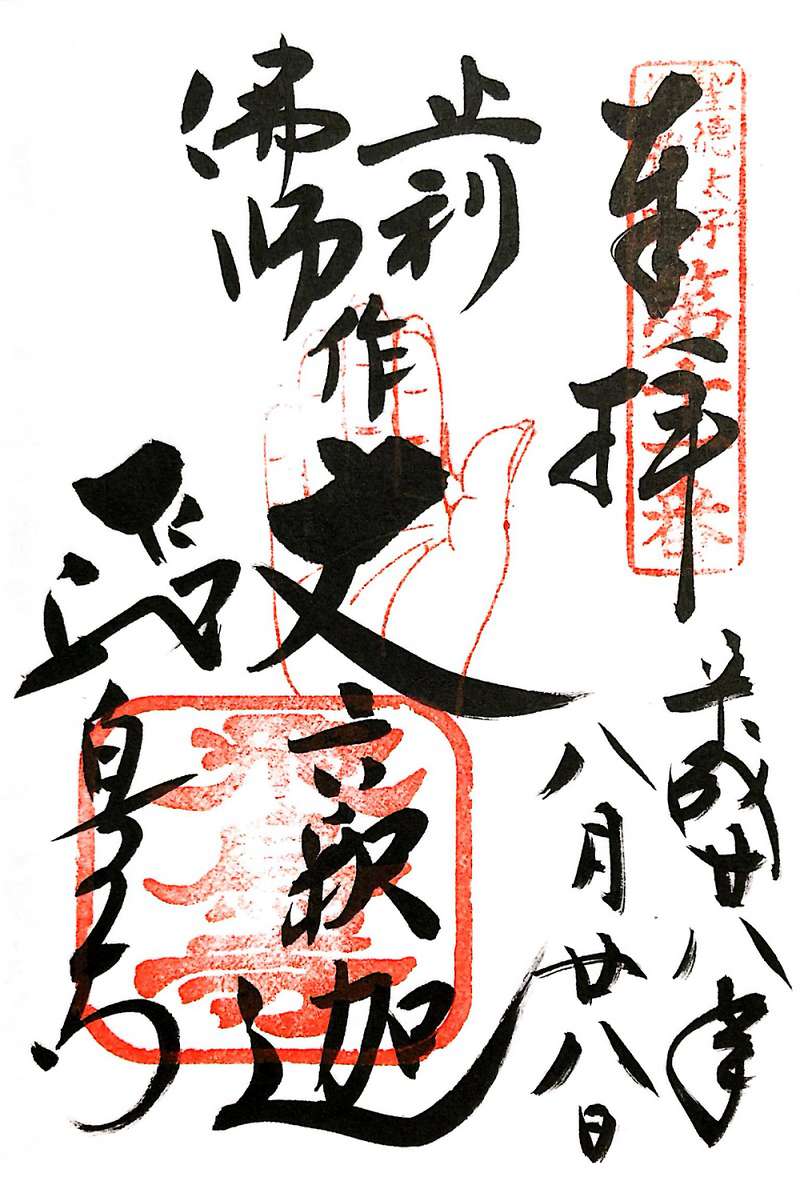 聖徳太子
第十一番
奉拝
平成廿八年
八月廿八日
止利
佛師
作
丈六釈迦
飛鳥寺